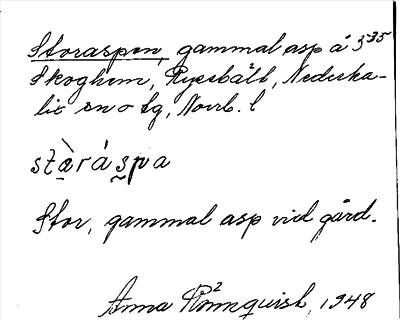 Storaspen, gammal asp å 3³⁵
Skoghem, Ryssbält, Nederka-
lix sn o tg, Norrb. l
stàráspa
Stor, gammal asp vid gård.
Anna Rönnquist, 1948